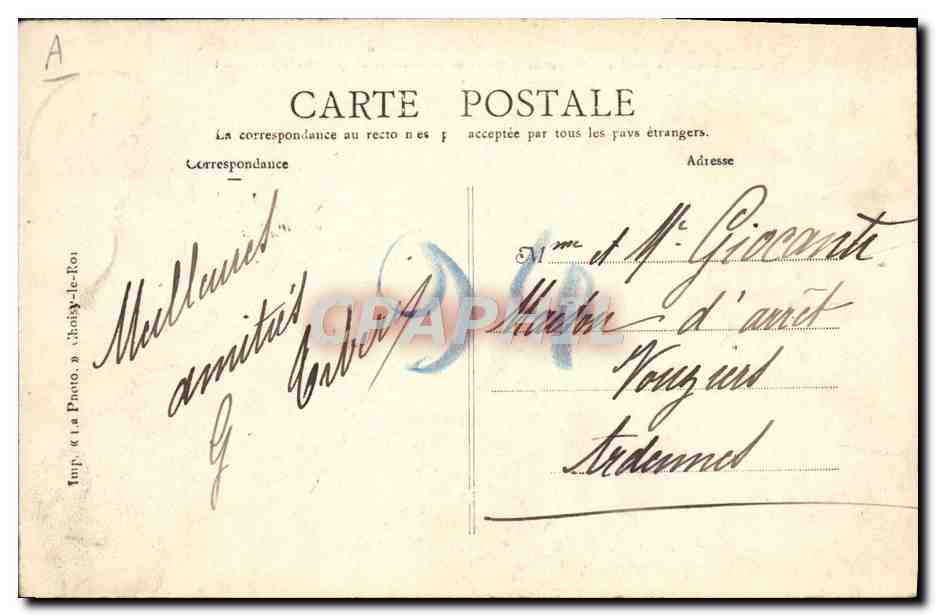 A
CARTE POSTALE
La correspondance au recto n'es p acceptée par tous les pays étrangers.
Correspondance
Adresse
Meilleures
amitiés
G
Mme et Mr Giocanti
Maison d'arrêt
Vouziers
Ardennes
Imp. « La Photo. » Choisy-le-Roi
CRAPHIL